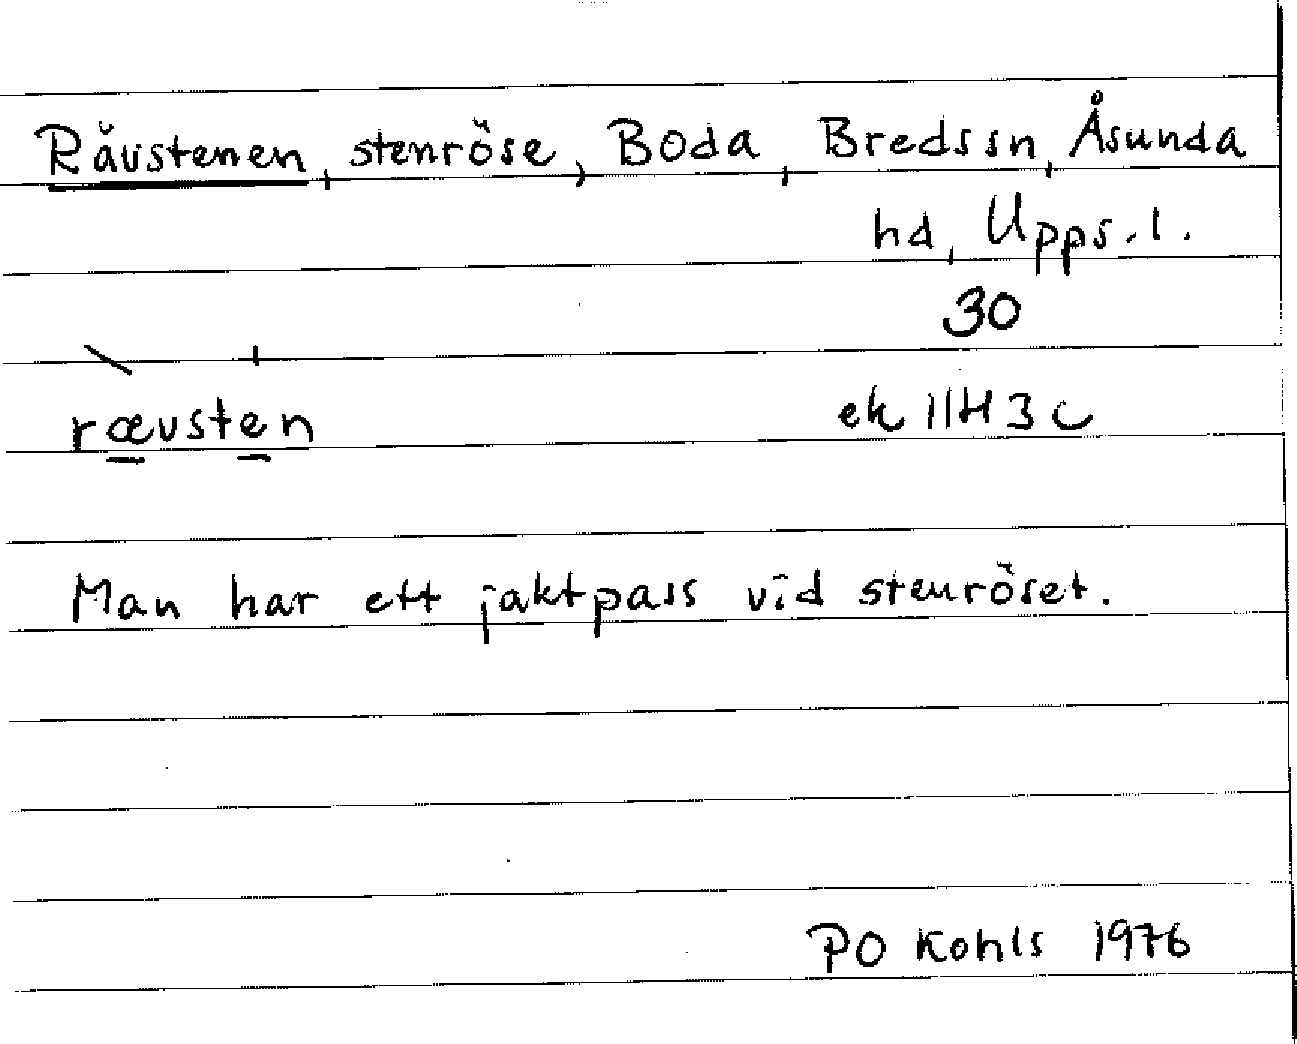 Rävstenen, stenröse, Boda, Bredssn, Åsunda
hd, Upps. l.
30
rævsten
ek 11H 3c
Man har ett jaktpass vid stenröset.
PO Kohls 1976